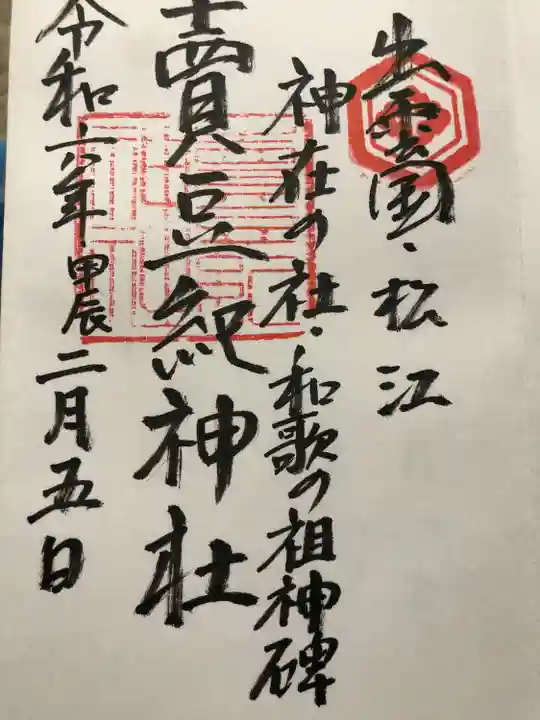 出雲國・松江
神在の社・和歌の祖神碑
賣豆紀神社
令和六年・甲辰二月五日